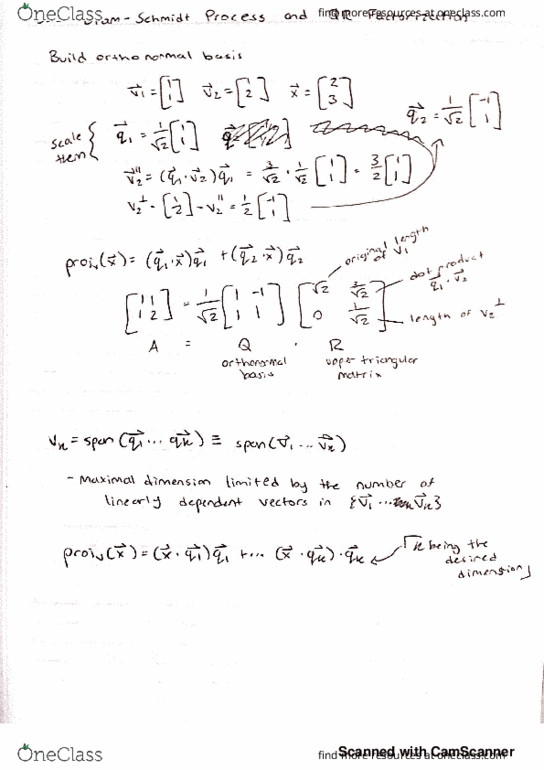 OneClass
find more resources at oneclass.com
Gram-Schmidt Process and QR Factorization
Build orthonormal basis
v⃗₁ = [1 1] v⃗₂ = [1 2] x⃗ = [2 3]
scale them { q⃗₁ = 1/√2 [1 1] q⃗₂ = 1/√2 [-1 1]
v⃗₂" = (q⃗₁·v⃗₂)q⃗₁ = 3/√2 · 1/√2 [1 1] = 3/2 [1 1]
v₂⊥ = [1 2] - v₂" = 1/2 [-1 1]
projᵥ(x⃗) = (q⃗₁·x⃗)q⃗₁ + (q⃗₂·x⃗)q⃗₂
original length of v⃗₁
dot product q⃗₁·v⃗₂
[1 1 1 2] = 1/√2 [1 -1 1 1] [√2 3/√2 0 1/√2]
length of v₂⊥
A = Q · R
orthonormal basis
upper triangular matrix
Vₖ = span(q⃗₁ ... q⃗ₖ) ≡ span(v⃗₁ ... v⃗ₖ)
- Maximal dimension limited by the number of
linearly dependent vectors in {v⃗₁ ... v⃗ₖ}
projᵥ(x⃗) = (x⃗·q⃗₁)q⃗₁ + ... (x⃗·q⃗ₖ)·q⃗ₖ
[k being the desired dimension]
OneClass
find more resources at oneclass.com
Scanned with CamScanner